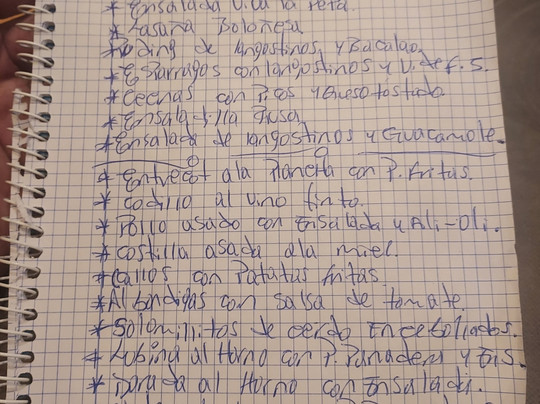 * Ensalada V.Ca la Feta.
* Lasaña Boloñesa
* Puding de langostinos y Bacalao.
* Esparragos con langostinos y V. de F.S.
* Cecinas con Picos y Queso tostado
* Ensaladilla Rusa
* Ensalada de langostinos y Guacamole.
* Entrecot a la Plancha con P. fritas.
* codillo al vino tinto.
* Pollo asado con Ensalada y Ali-Oli.
* costilla asada a la miel.
* Callos con Patatas fritas
* Albondigas con salsa de tomate.
* Solomillitos de cerdo Encebollados.
* Lubina al Horno con P. Panadera y
* Dorada al Horno con Ensalada.